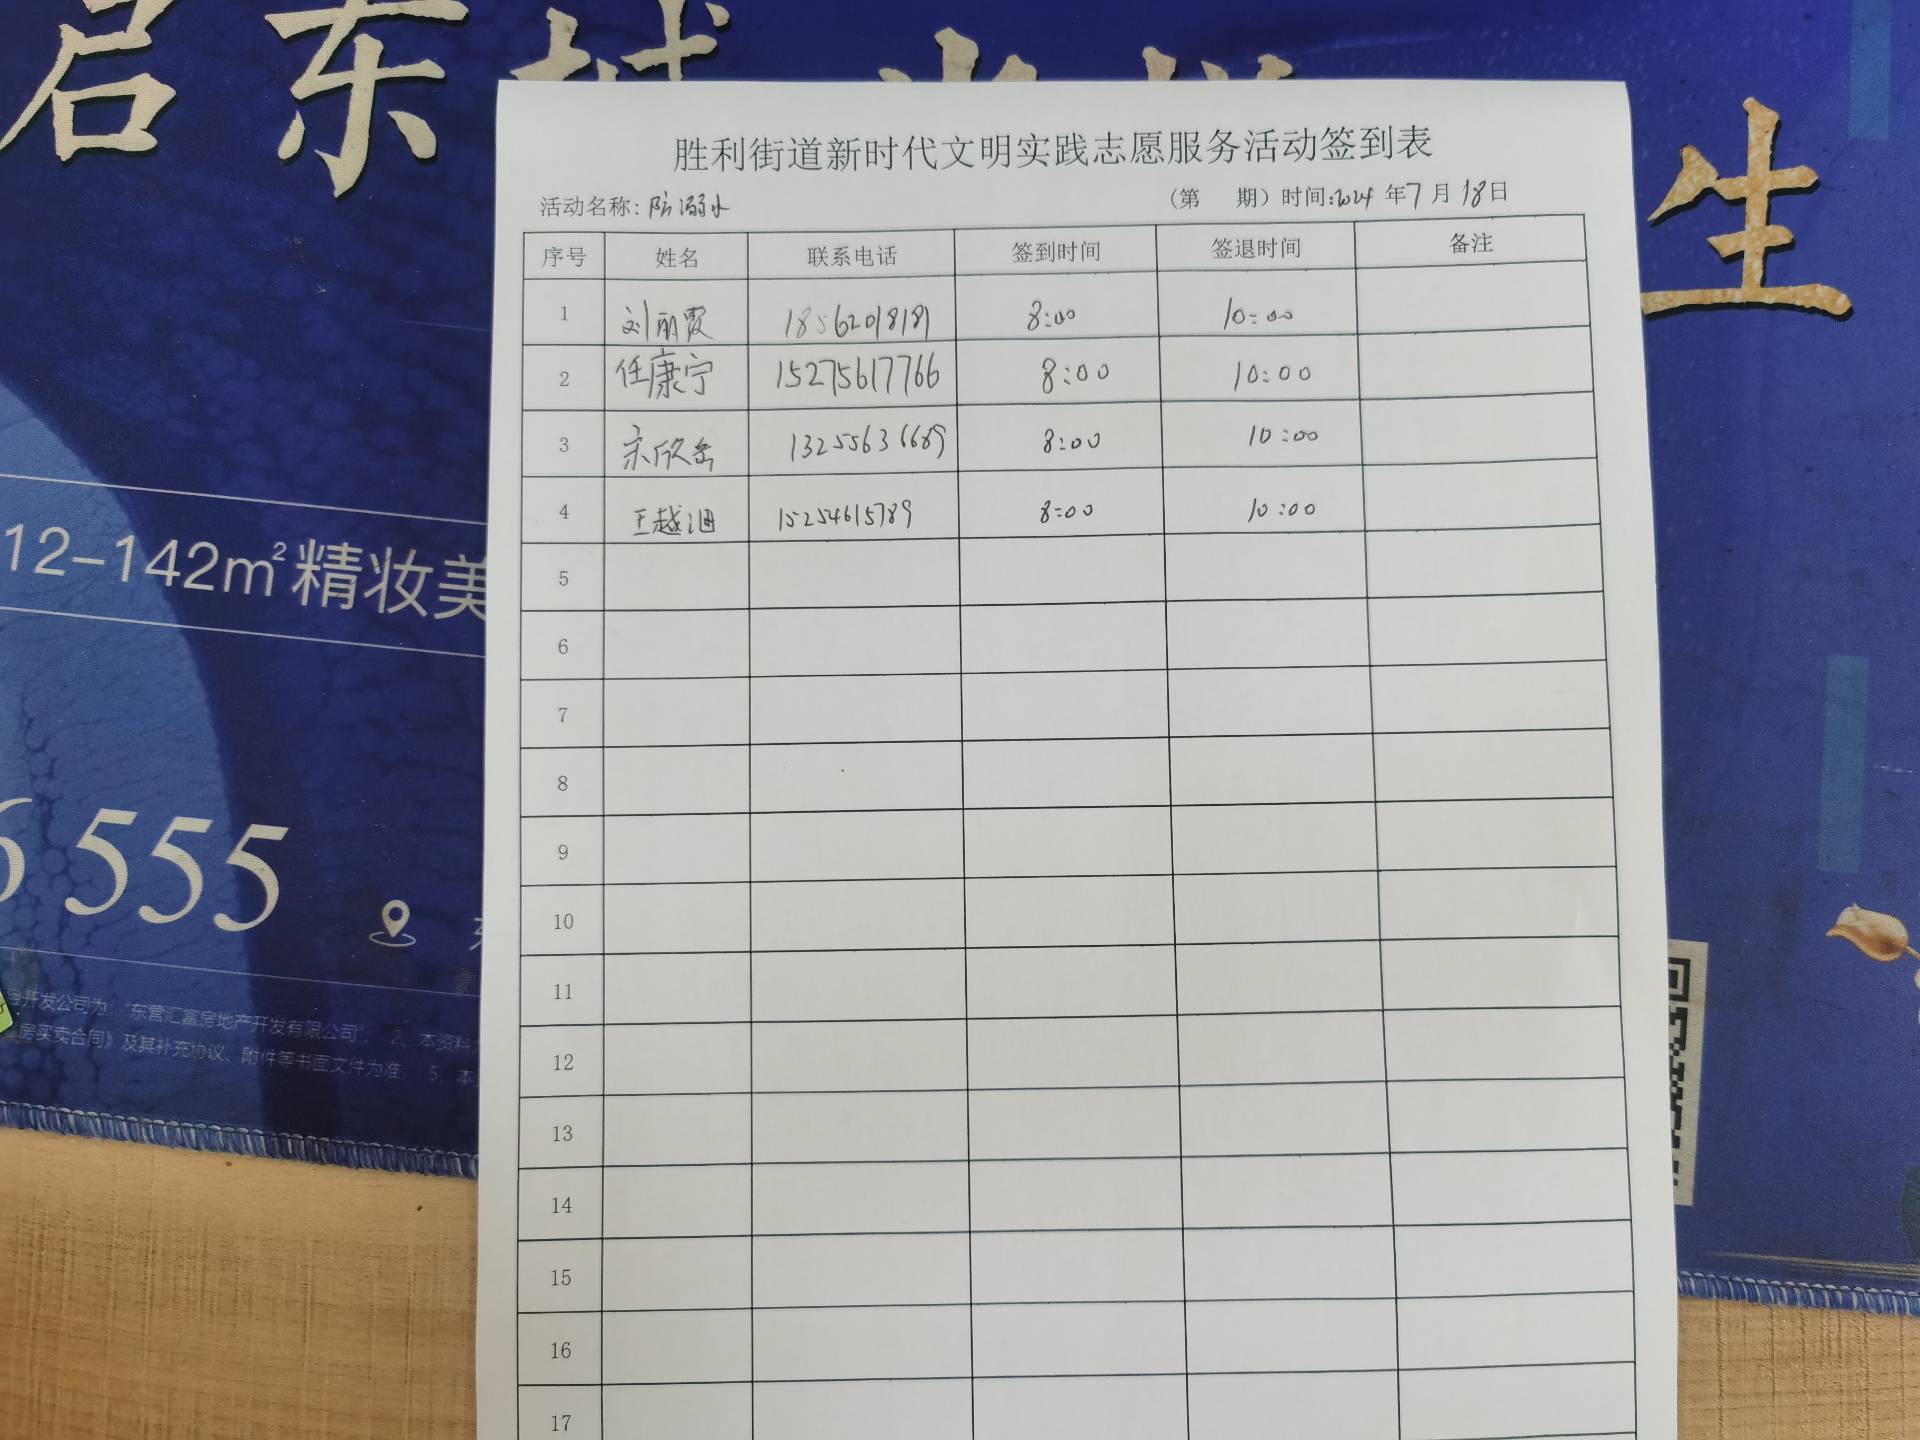 启东城
生
胜利街道新时代文明实践志愿服务活动签到表
活动名称: 防溺水 (第 期) 时间:2024 年 7 月 18 日
序号 姓名 联系电话 签到时间 签退时间 备注
1 刘丽霞 18562018181 8:00 10:00
2 任康宁 15275617766 8:00 10:00
3 宋欣岳 13255636689 8:00 10:00
4 王越 15254615789 8:00 10:00
5
6
7
8
9
10
11
12
13
14
15
16
17
12-142m²精妆美
6 555
开发公司为:“东营汇富房地产开发有限公司”; 2、本资料
房买卖合同》及其补充协议、附件等书面文件为准; 5、本